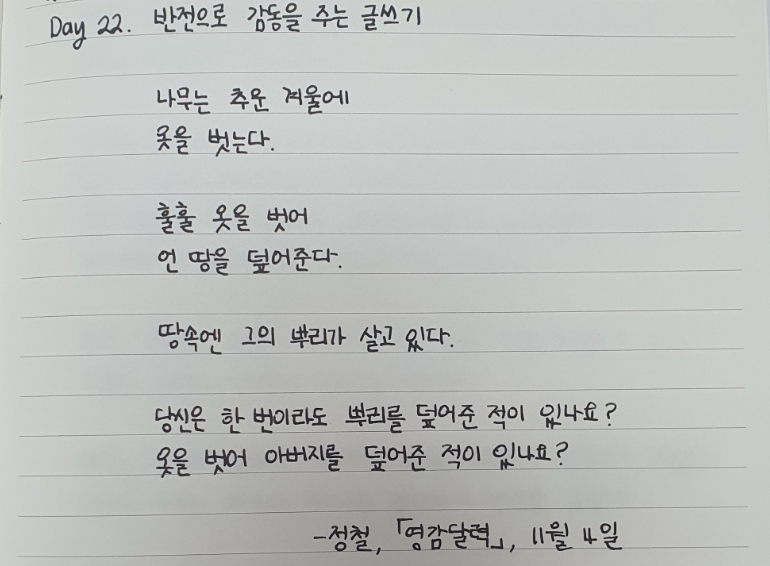 Day 22. 반전으로 감동을 주는 글쓰기
나무는 추운 겨울에
옷을 벗는다.
훌훌 옷을 벗어
언 땅을 덮어준다.
땅속엔 그의 뿌리가 살고 있다.
당신은 한 번이라도 뿌리를 덮어준 적이 있나요?
옷을 벗어 아버지를 덮어준 적이 있나요?
-정철, 「영감달력」, 11월 4일